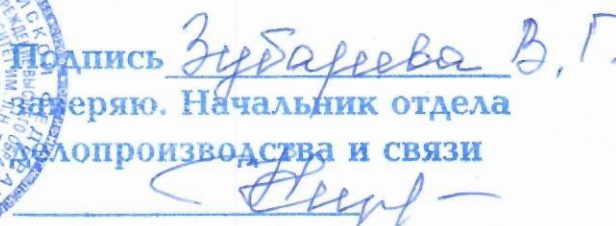 Подпись Зубарева В.Г.
заверяю. Начальник отдела
делопроизводства и связи